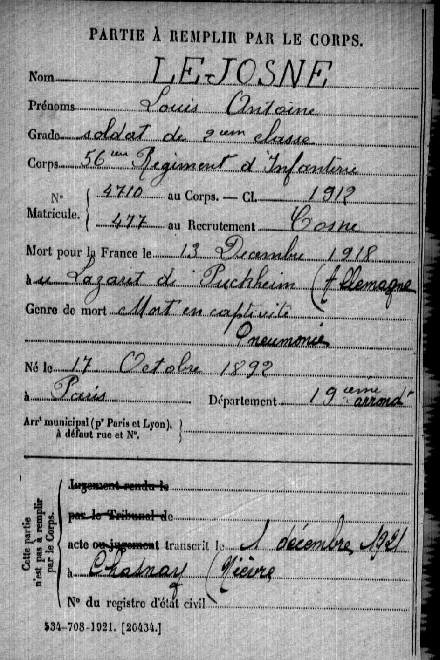 PARTIE À REMPLIR PAR LE CORPS.
Nom LE JOSNE
Prénoms Louis Antoine
Grade soldat de 2eme classe
Corps 56eme Régiment d'Infanterie
N° Matricule. { 4710 au Corps. — Cl. 1912
477 au Recrutement Cosne
Mort pour la France le 13 Decembre 1918
à u Lazaret de Puckheim (Allemagne
Genre de mort Mort en captivité
Pneumonie
Né le 17 Octobre 1892
à Paris Département 19eme arrondt
Arrt municipal (pr Paris et Lyon), à défaut rue et N°.
Cette partie n'est pas à remplir par le Corps.
Jugement rendu le
par le Tribunal de
acte ou jugement transcrit le 1 décembre 1921
à Chasnay (Nièvre
N° du registre d'état civil
534-708-1921. [26434.]